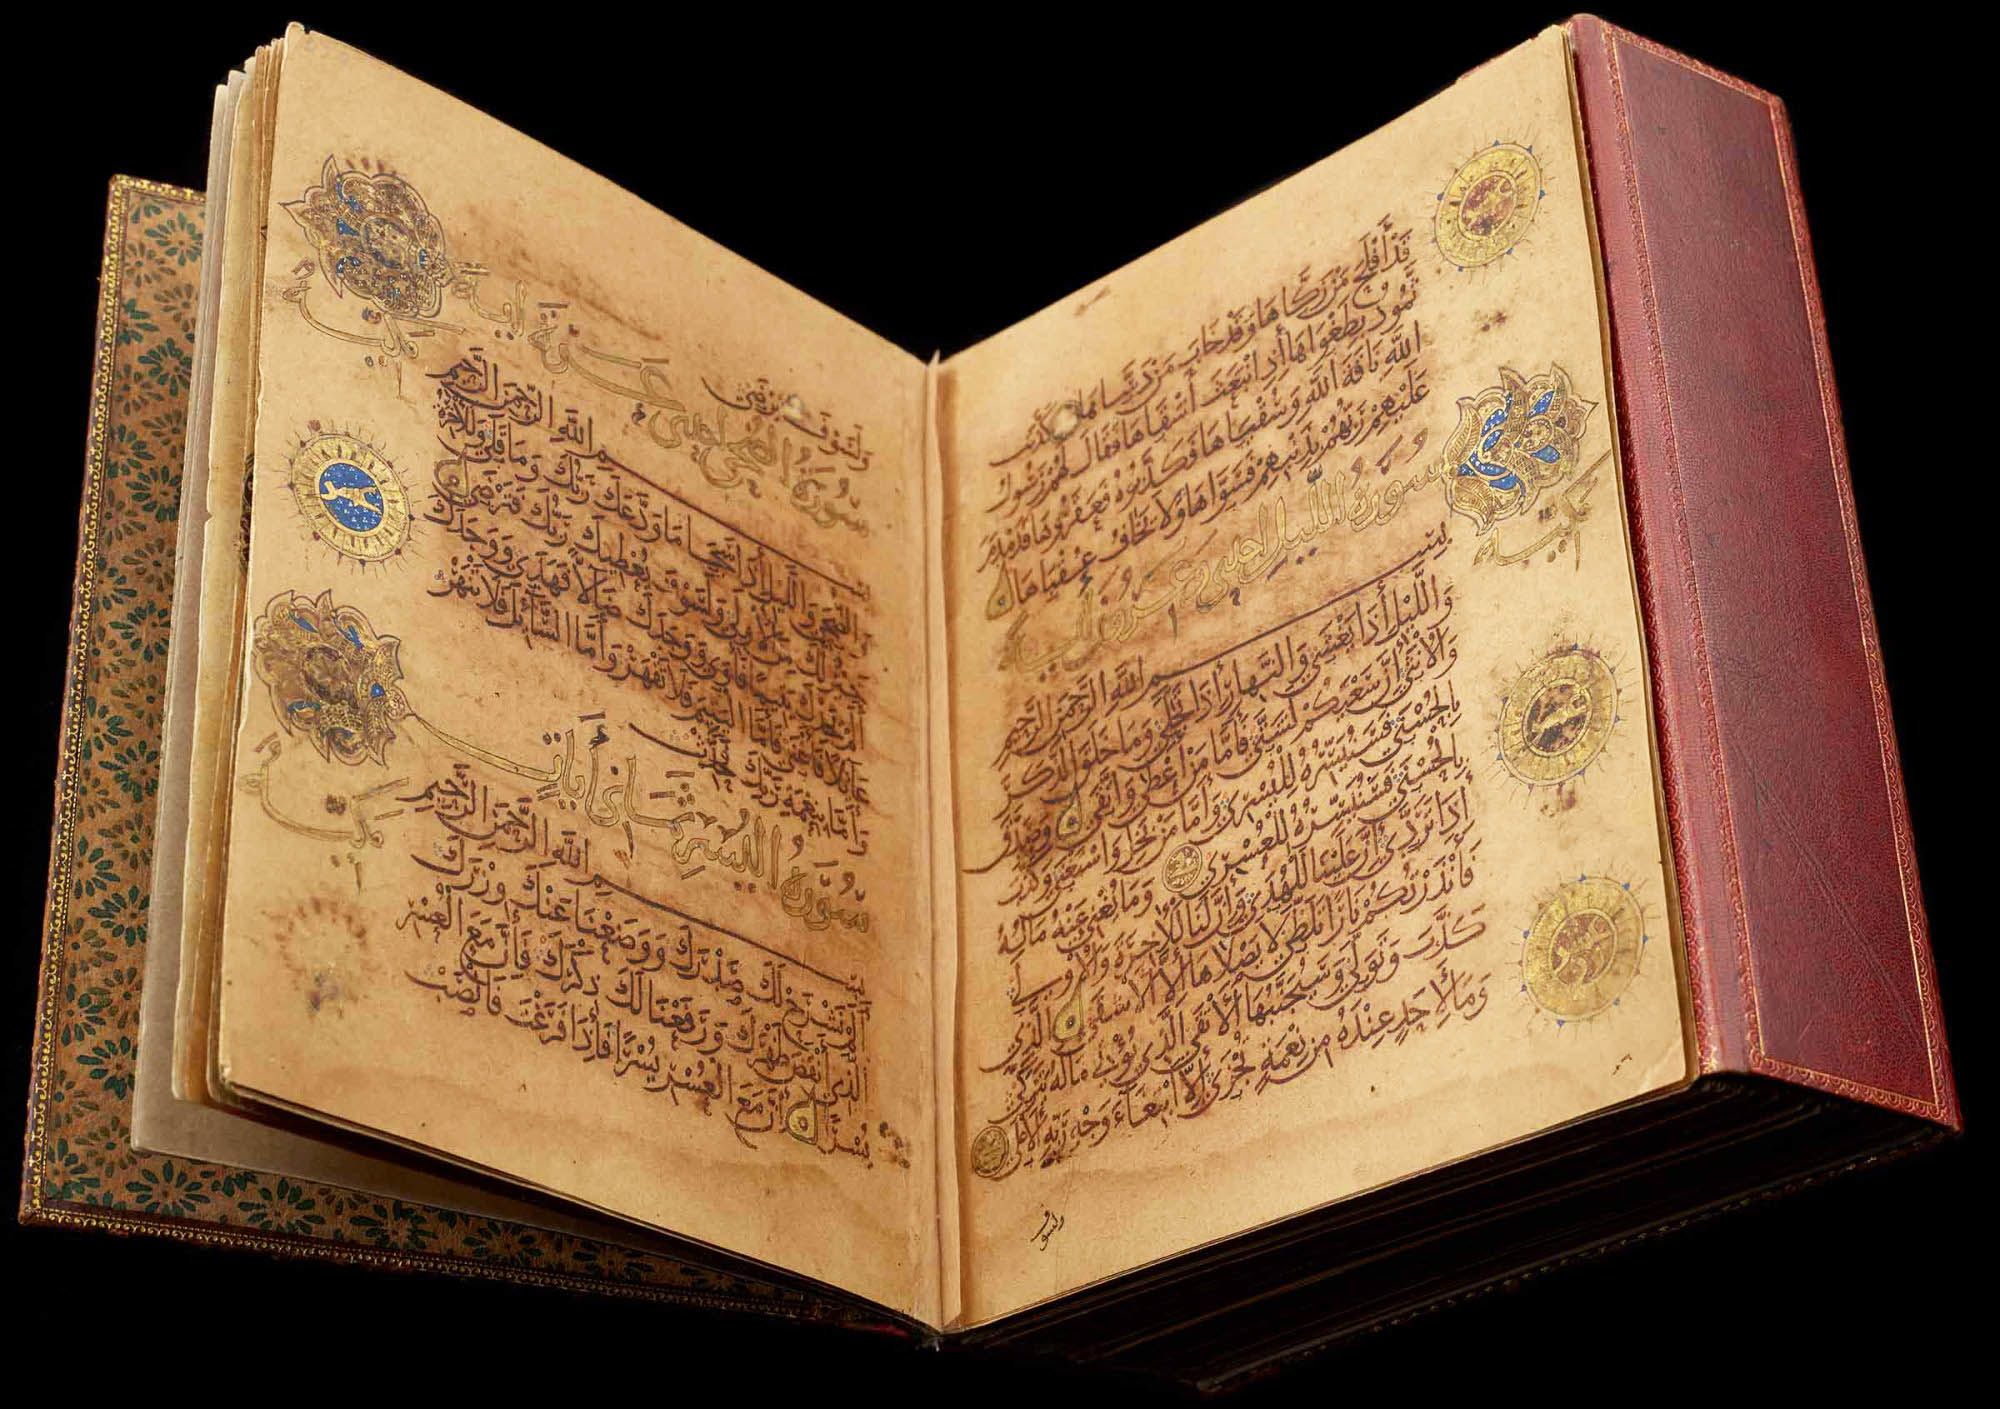 قَدْ أَفْلَحَ مَنْ زَكَّاهَا وَقَدْ خَابَ مَنْ دَسَّاهَا كَذَّبَتْ
ثَمُودُ بِطَغْوَاهَا إِذِ انْبَعَثَ أَشْقَاهَا فَقَالَ لَهُمْ رَسُولُ
اللَّهِ نَاقَةَ اللَّهِ وَسُقْيَاهَا فَكَذَّبُوهُ فَعَقَرُوهَا فَدَمْدَمَ
عَلَيْهِمْ رَبُّهُمْ بِذَنْبِهِمْ فَسَوَّاهَا وَلَا يَخَافُ عُقْبَاهَا
سُورَةُ اللَّيْلِ احدى وعشرون آية
مكية
بِسْمِ اللَّهِ الرَّحْمَنِ الرَّحِيمِ
وَاللَّيْلِ إِذَا يَغْشَى وَالنَّهَارِ إِذَا تَجَلَّى وَمَا خَلَقَ الذَّكَرَ
وَالْأُنْثَى إِنَّ سَعْيَكُمْ لَشَتَّى فَأَمَّا مَنْ أَعْطَى وَاتَّقَى وَصَدَّقَ
بِالْحُسْنَى فَسَنُيَسِّرُهُ لِلْيُسْرَى وَأَمَّا مَنْ بَخِلَ وَاسْتَغْنَى وَكَذَّبَ
بِالْحُسْنَى فَسَنُيَسِّرُهُ لِلْعُسْرَى وَمَا يُغْنِي عَنْهُ مَالُهُ
إِذَا تَرَدَّى إِنَّ عَلَيْنَا لَلْهُدَى وَإِنَّ لَنَا لَلْآخِرَةَ وَالْأُولَى
فَأَنْذَرْتُكُمْ نَارًا تَلَظَّى لَا يَصْلَاهَا إِلَّا الْأَشْقَى الَّذِي
كَذَّبَ وَتَوَلَّى وَسَيُجَنَّبُهَا الْأَتْقَى الَّذِي يُؤْتِي مَالَهُ يَتَزَكَّى
وَمَا لِأَحَدٍ عِنْدَهُ مِنْ نِعْمَةٍ تُجْزَى إِلَّا ابْتِغَاءَ وَجْهِ رَبِّهِ الْأَعْلَى
ولسوف
وَلَسَوْفَ يَرْضَى
سُورَةُ الضحى احدى عَشرَة آية
مكية
بِسْمِ اللَّهِ الرَّحْمَنِ الرَّحِيمِ
وَالضُّحَى وَاللَّيْلِ إِذَا سَجَى مَا وَدَّعَكَ رَبُّكَ وَمَا قَلَى وَلَلْآخِرَةُ
خَيْرٌ لَكَ مِنَ الْأُولَى وَلَسَوْفَ يُعْطِيكَ رَبُّكَ فَتَرْضَى
أَلَمْ يَجِدْكَ يَتِيمًا فَآوَى وَوَجَدَكَ ضَالًّا فَهَدَى وَوَجَدَكَ
عَائِلًا فَأَغْنَى فَأَمَّا الْيَتِيمَ فَلَا تَقْهَرْ وَأَمَّا السَّائِلَ فَلَا تَنْهَرْ
وَأَمَّا بِنِعْمَةِ رَبِّكَ فَحَدِّثْ
سُورَةُ اليُسْرِ ثماني آيات
مكية
بِسْمِ اللَّهِ الرَّحْمَنِ الرَّحِيمِ
أَلَمْ نَشْرَحْ لَكَ صَدْرَكَ وَوَضَعْنَا عَنْكَ وِزْرَكَ
الَّذِي أَنْقَضَ ظَهْرَكَ وَرَفَعْنَا لَكَ ذِكْرَكَ فَإِنَّ مَعَ الْعُسْرِ
يُسْرًا إِنَّ مَعَ الْعُسْرِ يُسْرًا فَإِذَا فَرَغْتَ فَانْصَبْ